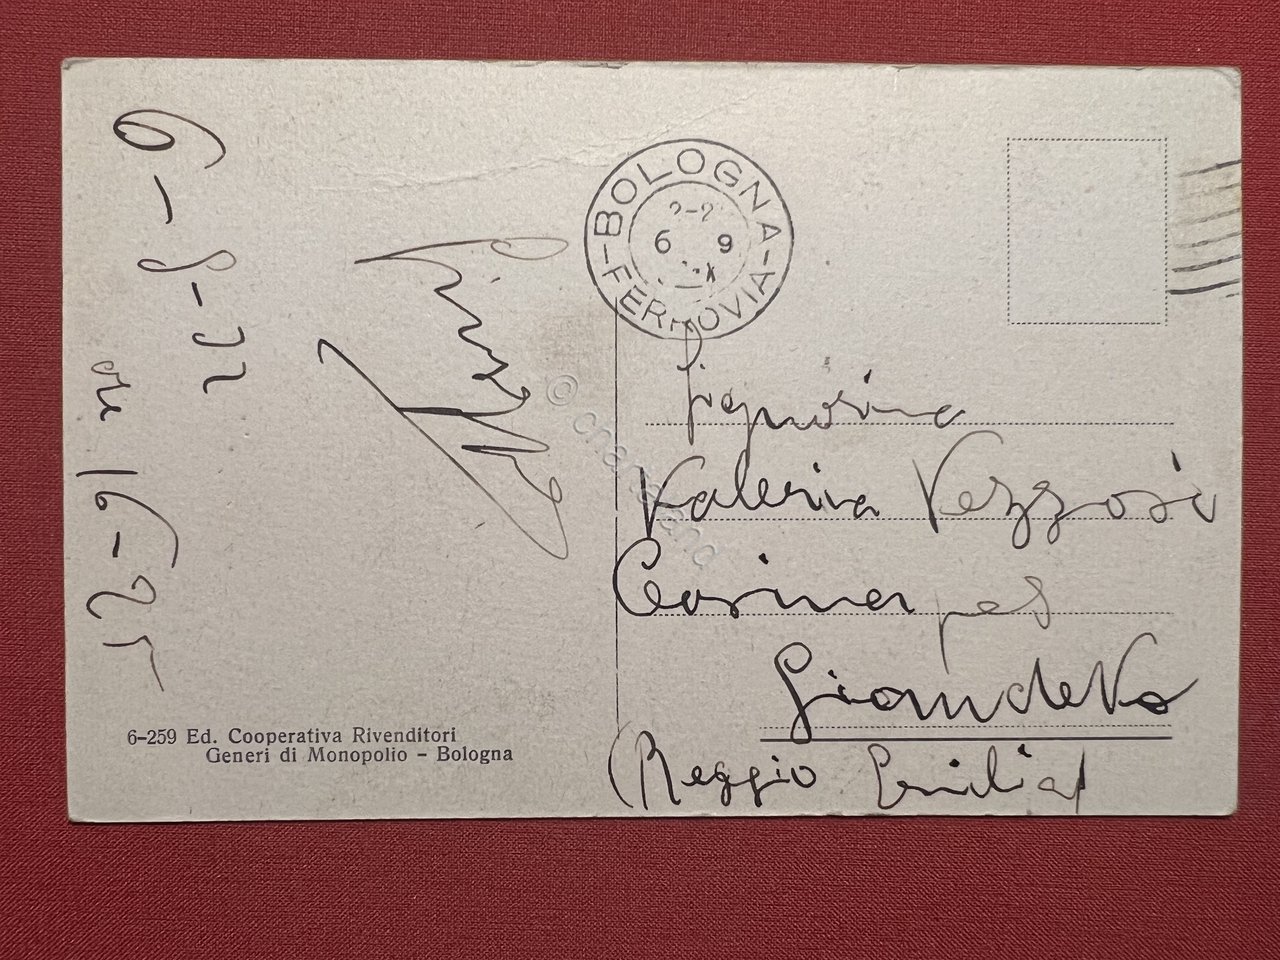 6-8-22
ore 16-25
BOLOGNA
6 9
X
-FERROVIA-
Signorina
Valeria Vezzosi
Casina per
Giandeto
(Reggio Emilia)
6-259 Ed. Cooperativa Rivenditori
Generi di Monopolio - Bologna
© chartaland